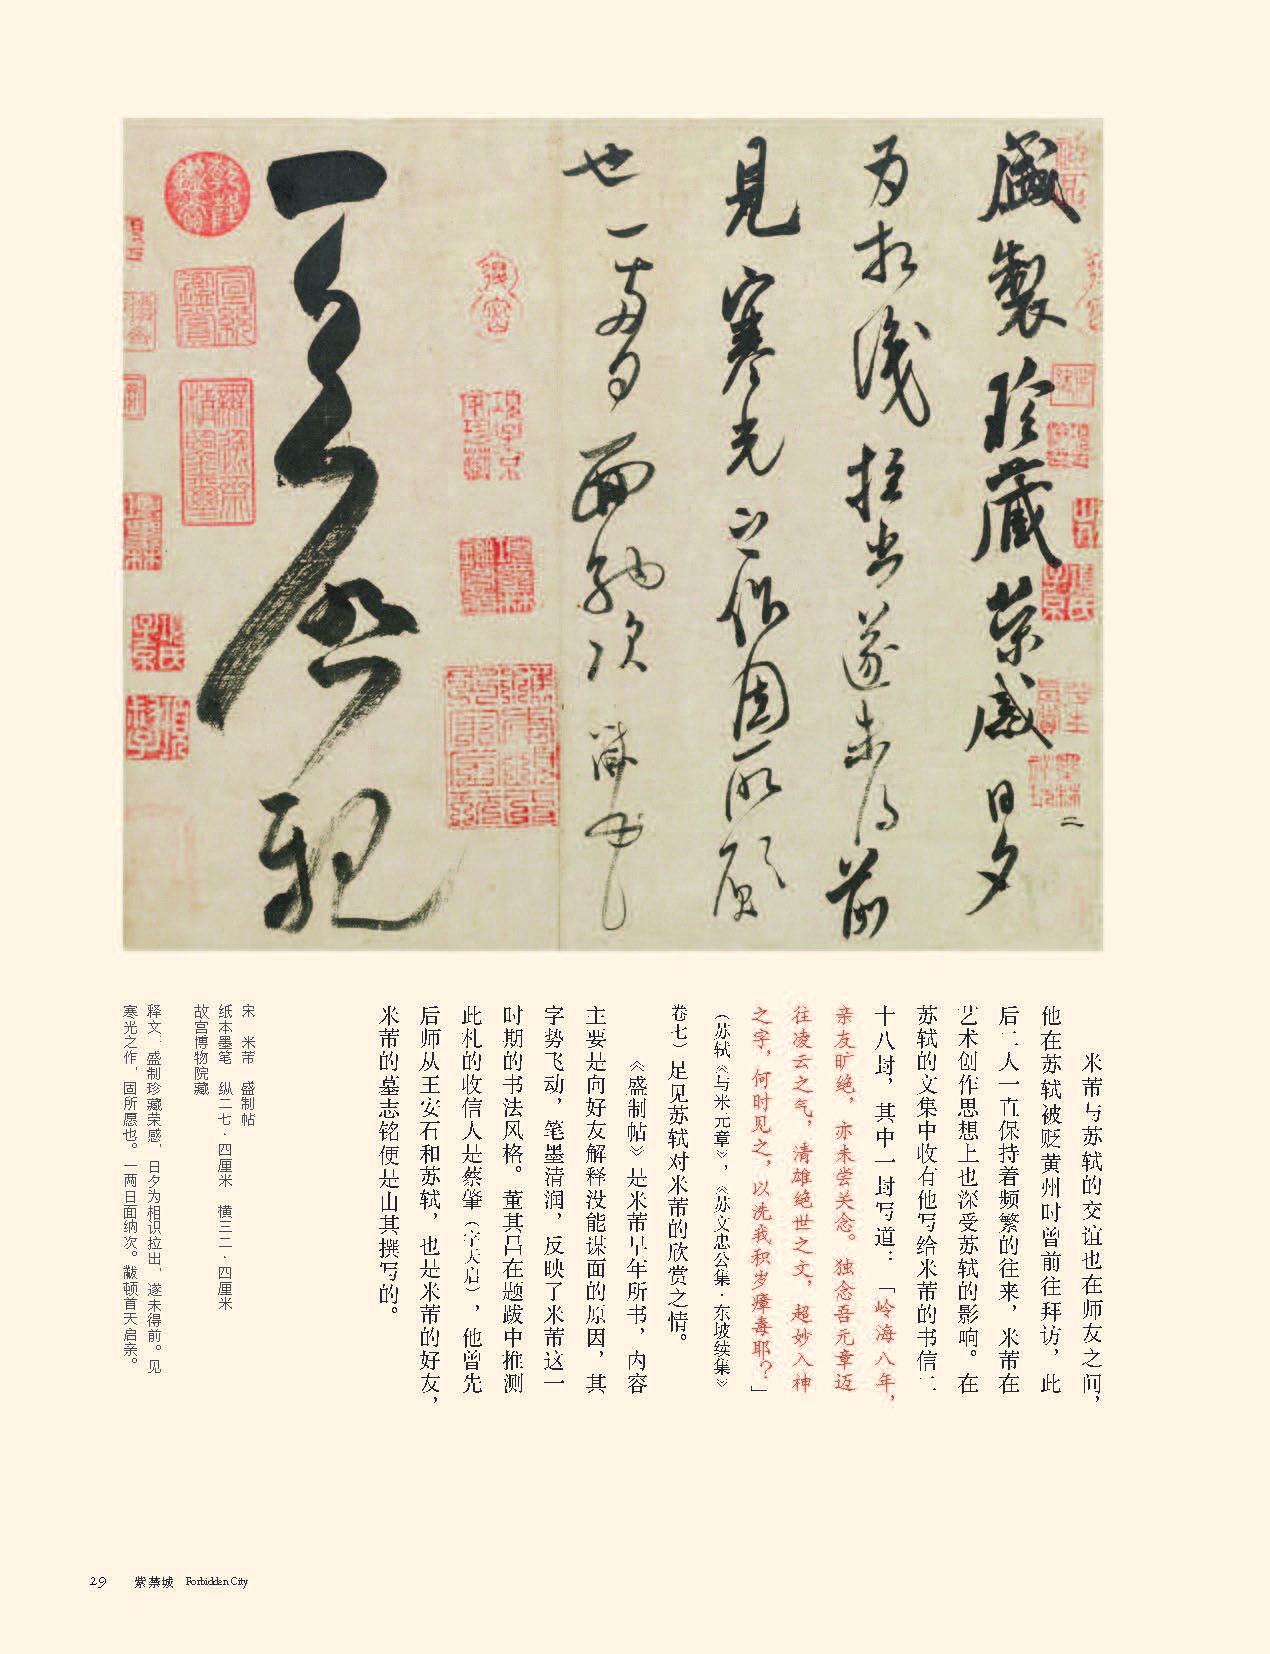 盛製珍藏荣感日夕
为相識拉出遂未得前
見寒光之作固所願
也一两日面納次黻顿首
天启親
二
米芾与苏轼的交谊也在师友之间，
他在苏轼被贬黄州时曾前往拜访，此
后二人一直保持着频繁的往来，米芾在
艺术创作思想上也深受苏轼的影响。在
苏轼的文集中收有他写给米芾的书信二
十八封，其中一封写道：「岭海八年，
亲友旷绝，亦未尝关念。独念吾元章迈
往凌云之气，清雄绝世之文，超妙入神
之字，何时见之，以洗我积岁瘴毒耶？」
（苏轼《与米元章》，《苏文忠公集·东坡续集》
卷七）足见苏轼对米芾的欣赏之情。
《盛制帖》是米芾早年所书，内容
主要是向好友解释没能谋面的原因，其
字势飞动，笔墨清润，反映了米芾这一
时期的书法风格。董其昌在题跋中推测
此札的收信人是蔡肇（字天启），他曾先
后师从王安石和苏轼，也是米芾的好友，
米芾的墓志铭便是由其撰写的。
宋 米芾 盛制帖
纸本墨笔 纵二七·四厘米 横三二·四厘米
故宫博物院藏
释文：盛制珍藏荣感，日夕为相识拉出，遂未得前。见
寒光之作，固所愿也。一两日面纳次。黻顿首天启亲。
29 紫禁城 Forbidden City